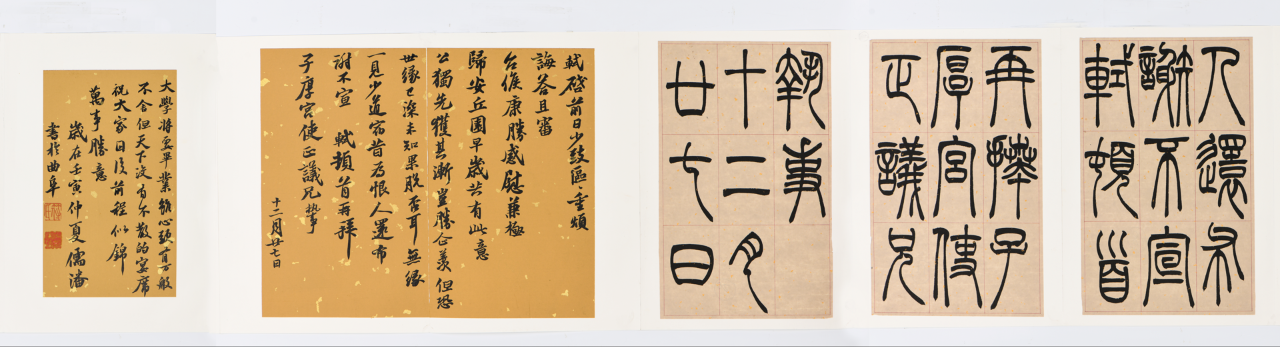 人還布
謝不宣
軾頓首
再拜子
厚宮使
正議兄
執事
十二月
廿七日
軾啓前日少致區區重煩
誨答且審
台候康勝感慰兼極
歸安丘園早歲共有此意
公獨先獲其漸豈勝企羨但恐
世緣已深未知果脫否耳無緣
一見少道宿昔為恨人還布
謝不宣 軾頓首再拜
子厚宮使正議兄執事
十二月廿七日
大學將要畢業縱心頭有万般
不舍但天下沒有不散的宴席
祝大家日後前程似錦
萬事勝意
歲在壬寅仲夏儒潘
書於曲阜